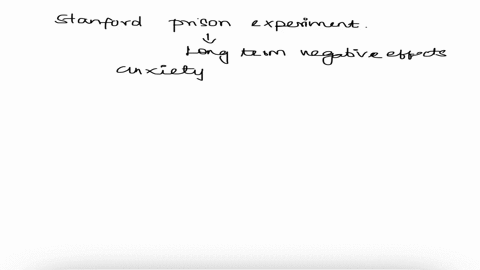 Stanford prison experiment.
↓
Long term negative effects
anxiety